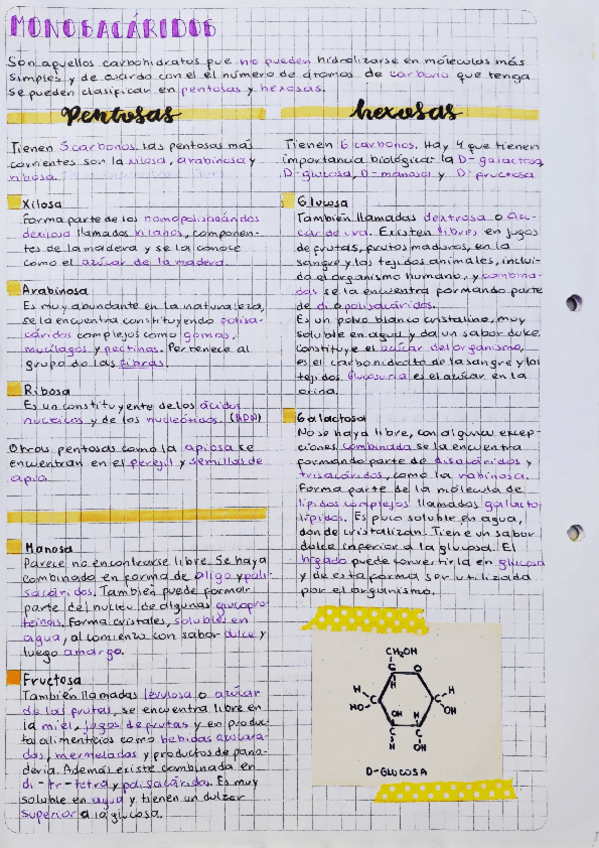 MONOSACÁRIDOS
Son aquellos carbohidratos que no pueden hidrolizarse en moléculas más
simples y de acuerdo con el el número de átomos de carbono que tenga
se pueden clasificar en pentosas y hexosas.
Pentosas
Tienen 5 carbonos. Las pentosas más
corrientes son la xilosa, arabinosa y
ribosa.
Xilosa
Forma parte de los homopolisacáridos
de xilosa llamados xilanos, componen-
tes de la madera y se la conoce
como el azúcar de la madera.
Arabinosa
Es muy abundante en la naturaleza,
se la encuentra constituyendo polisa-
cáridos complejos como gomas,
mucílagos y pectinas. Pertenece al
grupo de las fibras.
Ribosa
Es un constituyente de los ácidos
nucleicos y de los nucleótidos. (ADN)
Otras pentosas como la apiosa se
encuentran en el perejil y semillas de
apio
Manosa
Parece no encontrarse libre. Se haya
combinada en forma de oligo y poli-
sacáridos. También puede formar
parte del nucleo de algunas glucopro-
teínas. Forma cristales, solubles en
agua, al comienzo con sabor dulce y
luego amargo.
Fructosa
También llamadas levulosa o azúcar
de las frutas, se encuentra libre en
la miel, jugos de frutas y en produc-
tos alimenticios como bebidas azucara-
das, mermeladas y productos de pana-
dería. Además existe combinada en
di-tri-tetra y polisacáridos. Es muy
soluble en agua y tienen un dulzor
superior a la glucosa.
hexosas
Tienen 6 carbonos. Hay 4 que tienen
importancia biológica: la D-galactosa,
D-glucosa, D-manosa y D-fructosa
Glucosa
También llamadas dextrosa o azú-
car de uva. Existen libres en jugos
de frutas, frutos maduros, en la
sangre y los tejidos animales, inclui-
do el organismo humano, y combina-
das se la encuentra formando parte
de di o polisacáridos.
Es un polvo blanco cristalino, muy
soluble en agua y da un sabor dulce.
Constituye el azúcar del organismo,
es el carbohidrato de la sangre y los
tejidos. Glucosuria es el azúcar en la
orina.
Galactosa
No se haya libre, con algunas excep-
ciones combinada se la encuentra
formando parte de disacáridos y
trisacáridos, como la rabinosa.
Forma parte de la molécula de
lípidos complejos llamados galacto
lípidos. Es poco soluble en agua,
donde cristalizan. Tiene un sabor
dulce inferior a la glucosa. El
hígado puede convertirla en glucosa
y de esta forma ser utilizada
por el organismo.
CH₂OH
C O
H H H
C C
HO OH H OH
C C
H OH
D-GLUCOSA